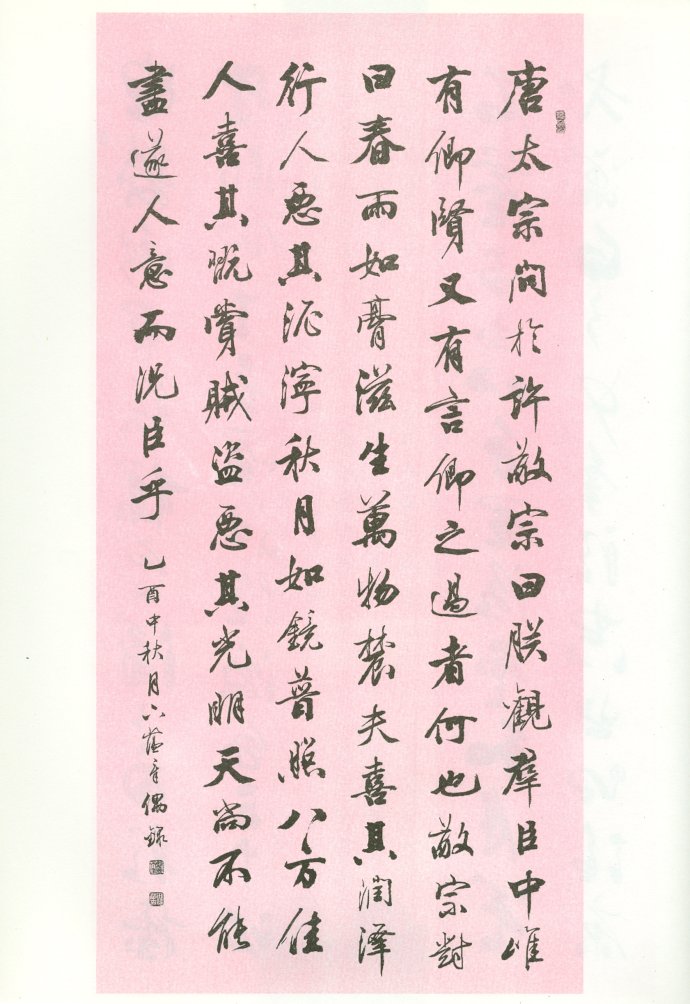 唐太宗問於許敬宗曰朕觀羣臣中唯
有卿賢又有言卿之過者何也敬宗對
曰春雨如膏滋生萬物農夫喜其潤澤
行人惡其泥濘秋月如鏡普照八方佳
人喜其既賞賊盜惡其光明天尚不能
盡遂人意而況臣乎
乙酉中秋月 偶錄